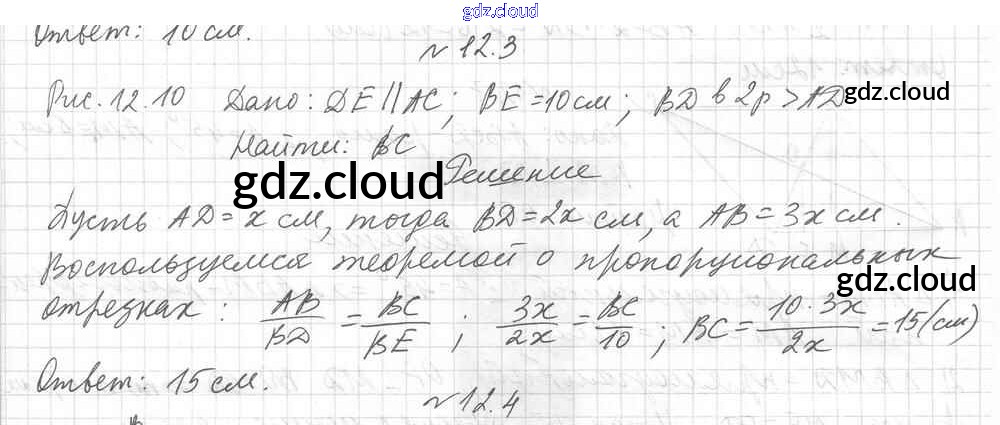 gdz.cloud
Ответ: 10 см.
№ 12.3
Рис. 12.10 Дано: DE || AC; BE = 10 см; BD в 2р > AD
gdz.cloud
Найти: BC
gdz.cloud
Решение
Пусть AD = x см, тогда BD = 2x см, а AB = 3x см.
Воспользуемся теоремой о пропорциональных
gdz.cloud
отрезках: AB/BD = BC/BE; 3x/2x = BC/10; BC = 10·3x/2x = 15 (см)
gdz.cloud
Ответ: 15 см.
№ 12.4